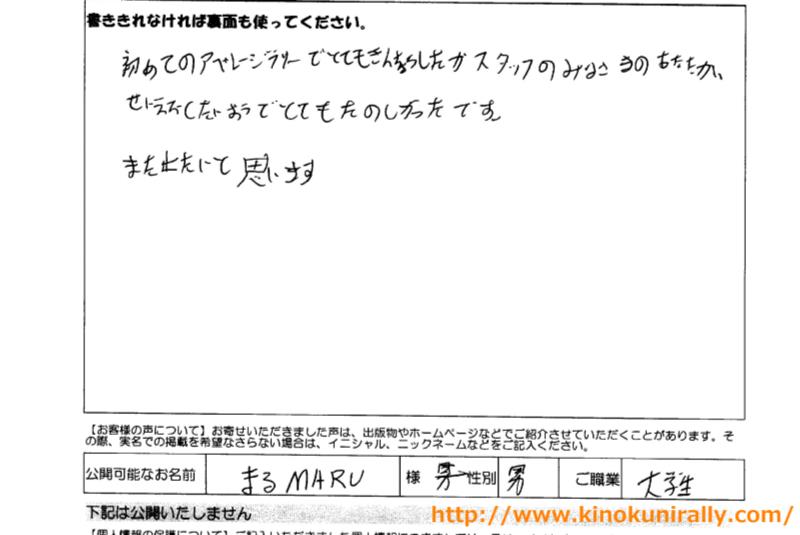 書ききれなければ裏面も使ってください。
初めてのアベレージラリーでとてもきんちょうしたがスタッフのみなさまのあたたかい
でとてもたのしかったです
また出たいと思います
【お客様の声について】お寄せいただきました声は、出版物やホームページなどでご紹介させていただくことがあります。そ
の際、実名での掲載を希望なさらない場合は、イニシャル、ニックネームなどをご記入ください。
公開可能なお名前 まる MARU 様 性別 男 ご職業 大学生
下記は公開いたしません
http://www.kinokunirally.com/